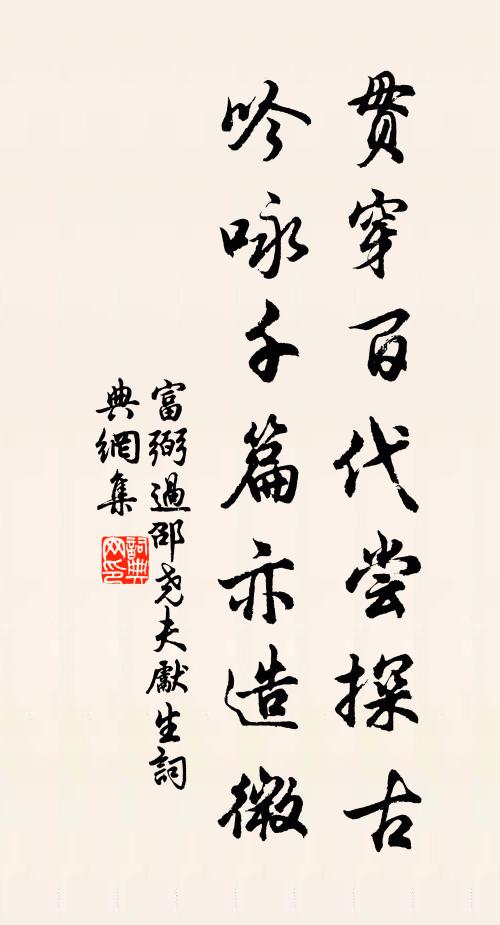 贯穿百代尝探古
吟咏千篇亦造微
富弼過邵尧夫獻生詞
典網集
詞典网印